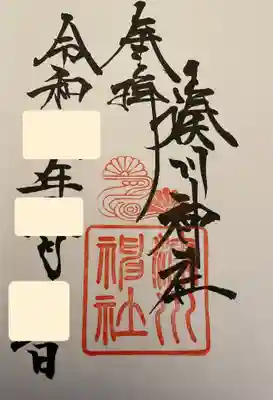 湊川神社
奉拝
令和 年 月 日
湊川神社